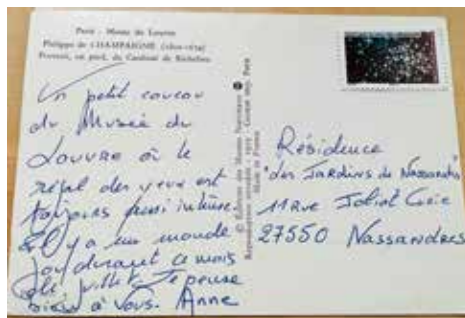 Paris - Musée du Louvre
Philippe de CHAMPAIGNE (1602-1674)
Portrait, en pied, du Cardinal de Richelieu
Un petit coucou
du Musée du
Louvre où le
régal des yeux est
toujours aussi intense.
Il y a un monde
fou durant ce mois
de juillet. Je pense
bien à vous. Anne
© Editions des Musées Nationaux
Made in France
Résidence
des Jardins de Nassandre
11 Rue Joliot Curie
27550 Nassandres